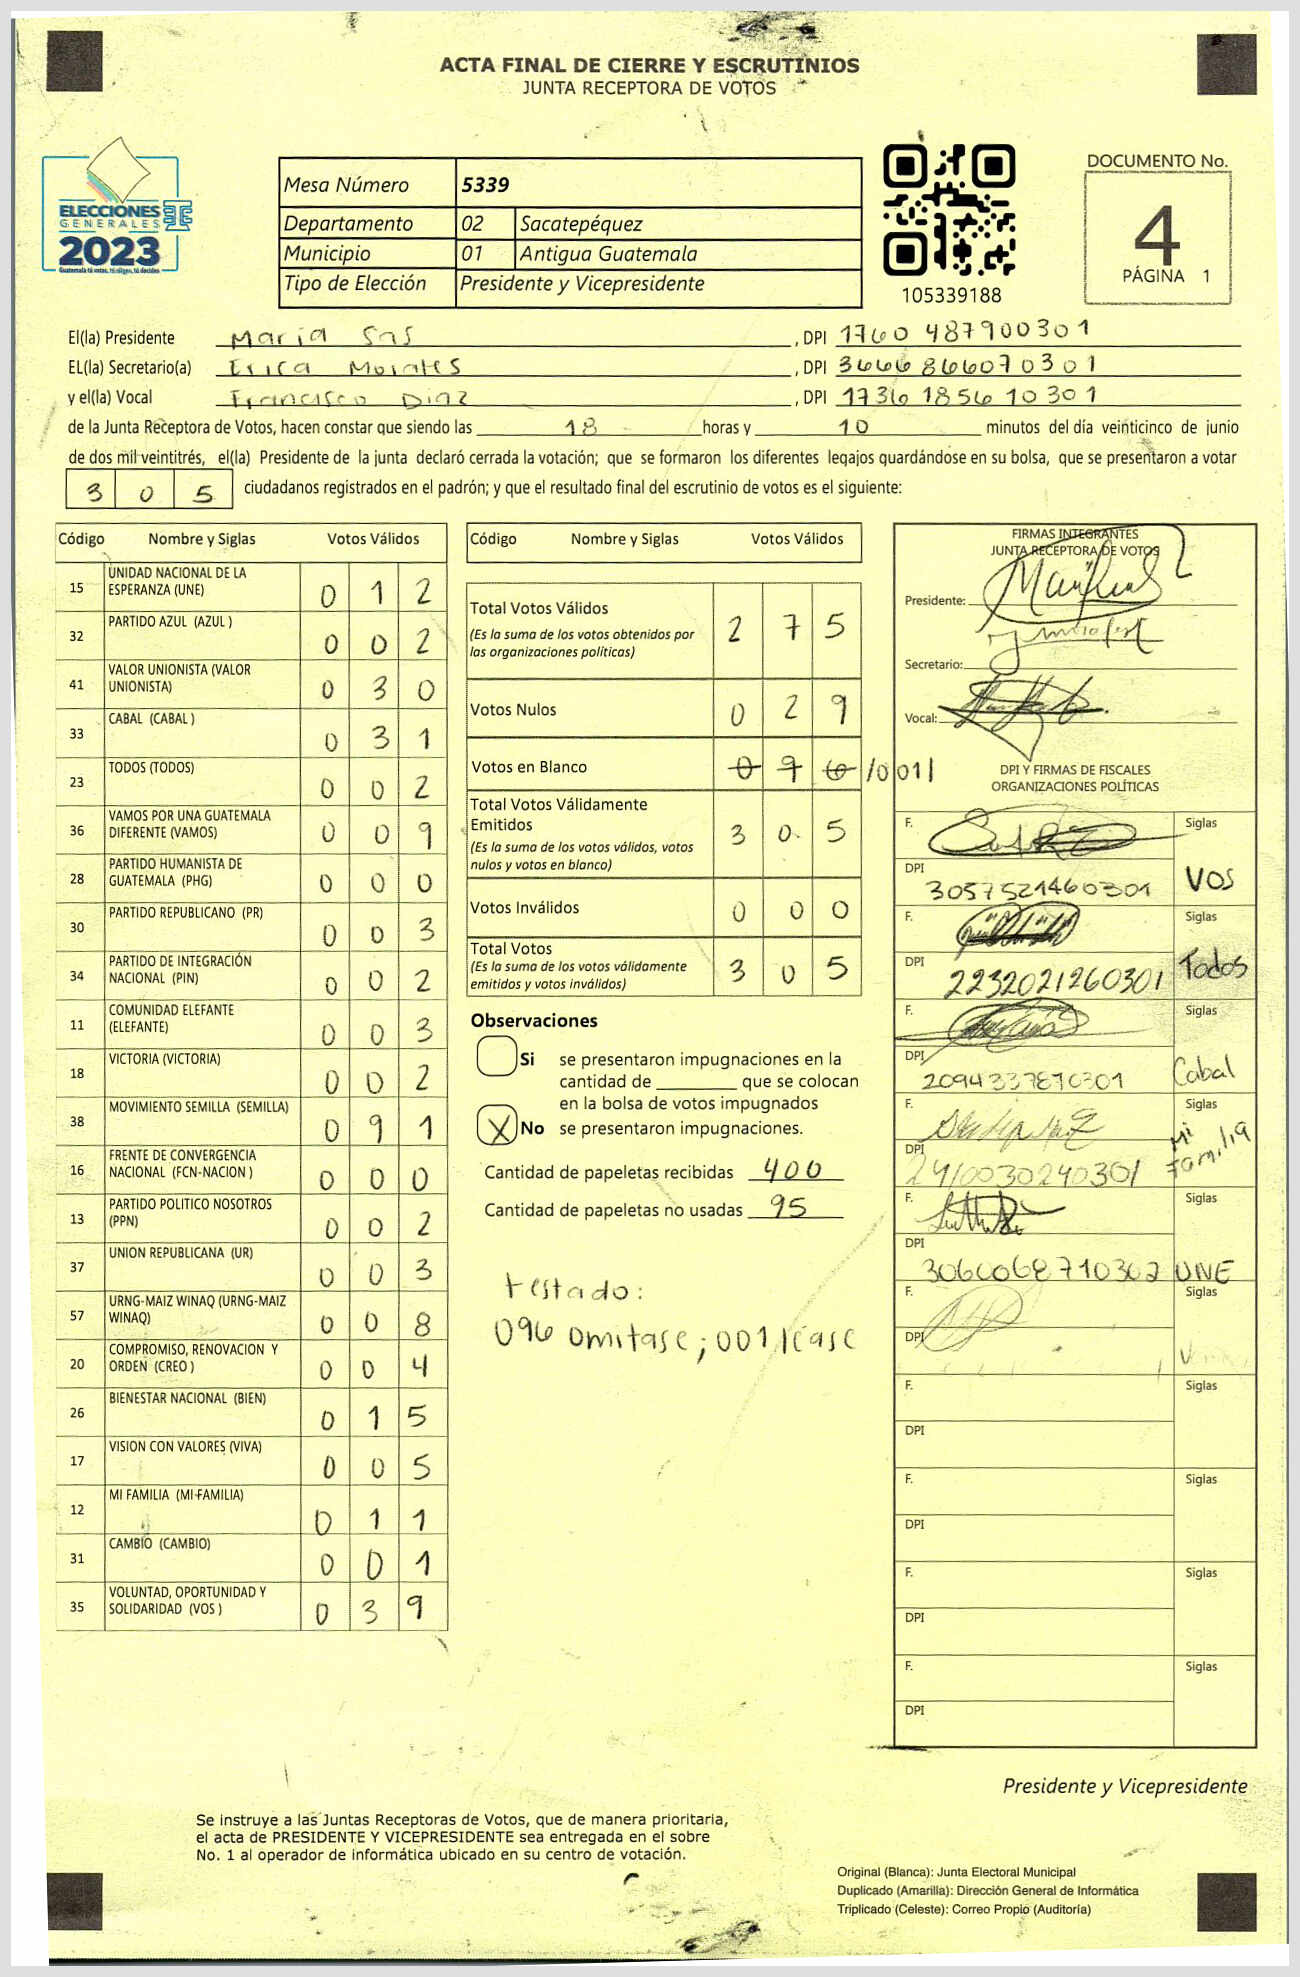 ACTA FINAL DE CIERRE Y ESCRUTINIOS
JUNTA RECEPTORA DE VOTOS
ELECCIONES
GENERALES
2023
Guatemala tú votas, tú eliges, tú decides
Mesa Número 5339
Departamento 02 Sacatepéquez
Municipio 01 Antigua Guatemala
Tipo de Elección Presidente y Vicepresidente
105339188
DOCUMENTO No.
4
PÁGINA 1
El(la) Presidente Maria Sas , DPI 1760 487900301
EL(la) Secretario(a) Erica Morales , DPI 3666866070301
y el(la) Vocal Francisco Diaz , DPI 1736185610301
de la Junta Receptora de Votos, hacen constar que siendo las 18 horas y 10 minutos del día veinticinco de junio
de dos mil veintitrés, el(la) Presidente de la junta declaró cerrada la votación; que se formaron los diferentes legajos guardándose en su bolsa, que se presentaron a votar
3 0 5 ciudadanos registrados en el padrón; y que el resultado final del escrutinio de votos es el siguiente:
Código Nombre y Siglas Votos Válidos
15 UNIDAD NACIONAL DE LA ESPERANZA (UNE) 0 1 2
32 PARTIDO AZUL (AZUL ) 0 0 2
41 VALOR UNIONISTA (VALOR UNIONISTA) 0 3 0
33 CABAL (CABAL ) 0 3 1
23 TODOS (TODOS) 0 0 2
36 VAMOS POR UNA GUATEMALA DIFERENTE (VAMOS) 0 0 9
28 PARTIDO HUMANISTA DE GUATEMALA (PHG) 0 0 0
30 PARTIDO REPUBLICANO (PR) 0 0 3
34 PARTIDO DE INTEGRACIÓN NACIONAL (PIN) 0 0 2
11 COMUNIDAD ELEFANTE (ELEFANTE) 0 0 3
18 VICTORIA (VICTORIA) 0 0 2
38 MOVIMIENTO SEMILLA (SEMILLA) 0 9 1
16 FRENTE DE CONVERGENCIA NACIONAL (FCN-NACION ) 0 0 0
13 PARTIDO POLITICO NOSOTROS (PPN) 0 0 2
37 UNION REPUBLICANA (UR) 0 0 3
57 URNG-MAIZ WINAQ (URNG-MAIZ WINAQ) 0 0 8
20 COMPROMISO, RENOVACION Y ORDEN (CREO ) 0 0 4
26 BIENESTAR NACIONAL (BIEN) 0 1 5
17 VISION CON VALORES (VIVA) 0 0 5
12 MI FAMILIA (MI-FAMILIA) 0 1 1
31 CAMBIO (CAMBIO) 0 0 1
35 VOLUNTAD, OPORTUNIDAD Y SOLIDARIDAD (VOS ) 0 3 9
Código Nombre y Siglas Votos Válidos
Total Votos Válidos 2 7 5
(Es la suma de los votos obtenidos por
las organizaciones políticas)
Votos Nulos 0 2 9
Votos en Blanco 0 9 6 /001/
Total Votos Válidamente
Emitidos 3 0 5
(Es la suma de los votos válidos, votos
nulos y votos en blanco)
Votos Inválidos 0 0 0
Total Votos 3 0 5
(Es la suma de los votos válidamente
emitidos y votos inválidos)
Observaciones
Si se presentaron impugnaciones en la
cantidad de ________ que se colocan
en la bolsa de votos impugnados
X No se presentaron impugnaciones.
Cantidad de papeletas recibidas 400
Cantidad de papeletas no usadas 95
testado:
096 omitase; 001 lease
FIRMAS INTEGRANTES
JUNTA RECEPTORA DE VOTOS
Presidente:
Secretario:
Vocal:
DPI Y FIRMAS DE FISCALES
ORGANIZACIONES POLÍTICAS
F. Siglas
DPI 3057521460301 VOS
F. Siglas
DPI 2232021260301 Todos
F. Siglas
DPI 2094337870301 Cabal
F. Siglas
DPI 2410030240301 Mi Familia
F. Siglas
DPI 3060068710302 UNE
F. Siglas
DPI
F. Siglas
DPI
F. Siglas
DPI
F. Siglas
DPI
F. Siglas
DPI
Presidente y Vicepresidente
Se instruye a las Juntas Receptoras de Votos, que de manera prioritaria,
el acta de PRESIDENTE Y VICEPRESIDENTE sea entregada en el sobre
No. 1 al operador de informática ubicado en su centro de votación.
Original (Blanca): Junta Electoral Municipal
Duplicado (Amarilla): Dirección General de Informática
Triplicado (Celeste): Correo Propio (Auditoría)